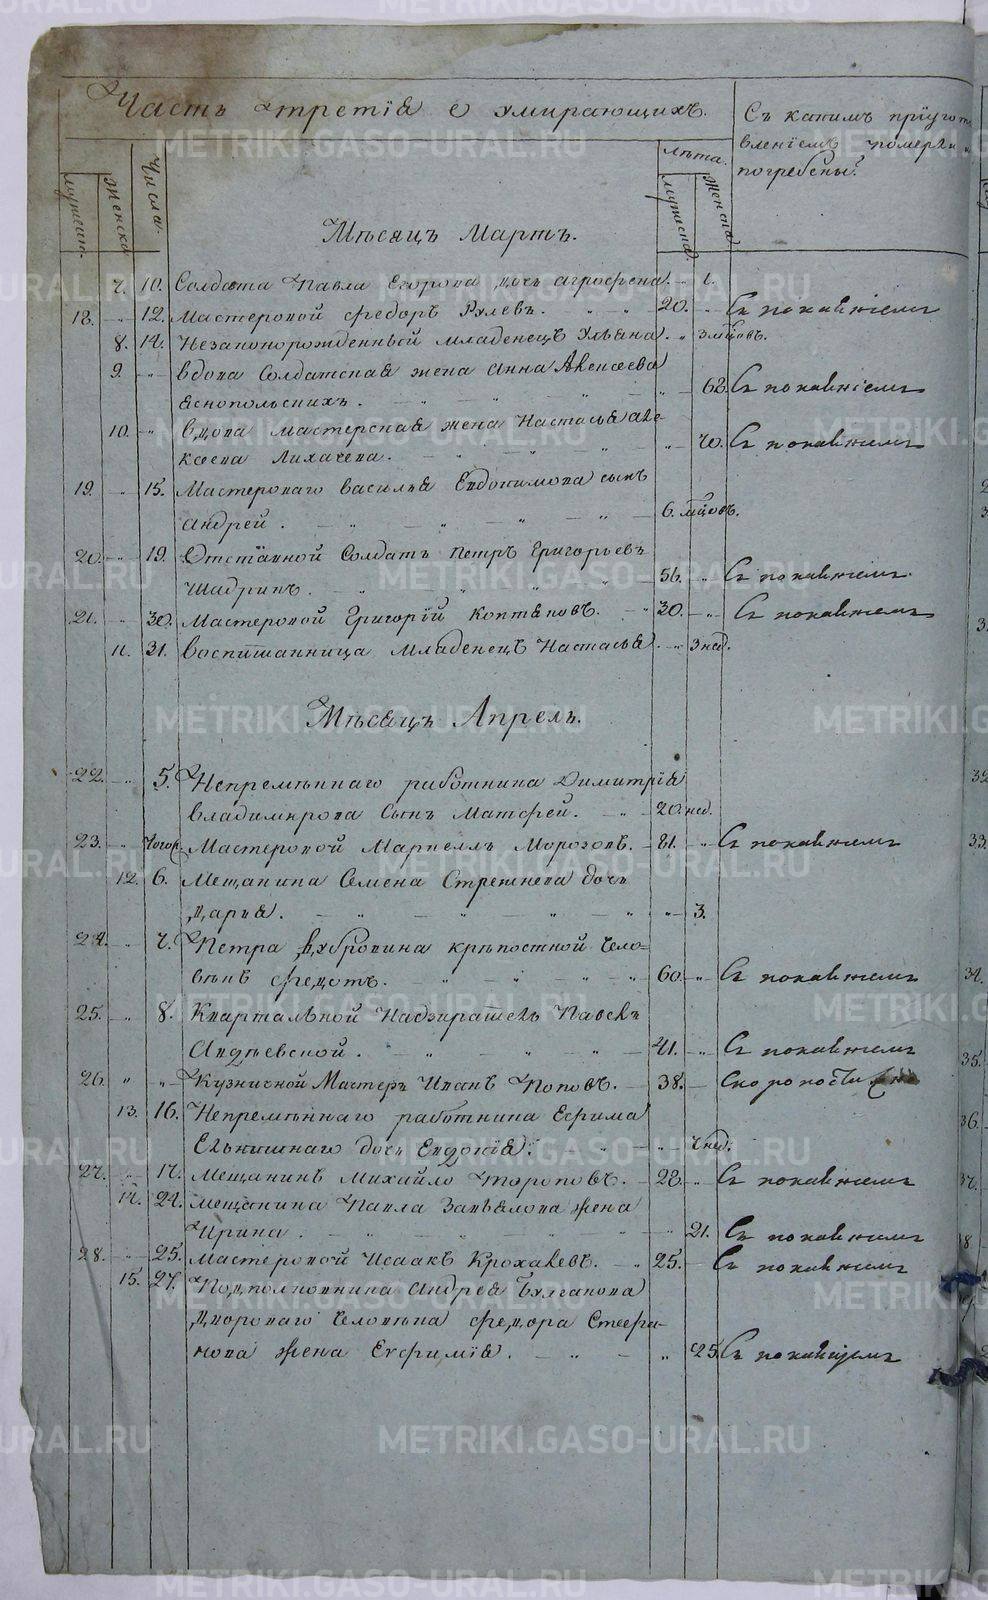 Часть третія о умирающихъ.
Съ какимъ пріугото
вленіемъ померли и
погребены?
мужеск.
женска
Числа.
лѣта.
мужеска.
женска
Мѣсяцъ Мартъ.
7. 10. Солдата Павла Егорова дочь агрофена. 1.
18. 12. Мастеровой Федоръ Рулевъ. 20. Съ покаяніемъ
8. 14. Незаконорожденный младенецъ Ульяна. 3 мцовъ.
9. вдова Солдатская жена Анна Алексеева
яснопольскихъ. 62. Съ покаяніемъ
10. вдова мастерская жена Настасья але-
ксеева Лихачева. 70. Съ покаяніемъ
19. 15. Мастероваго василья Евдокимова сынъ
Андрей. 6. мцовъ.
20. 19. Отставной Солдатъ Петръ Григорьевъ
Шадринъ. 56. Съ покаяніемъ.
21. 30. Мастеровой Григорій Коптяковъ. 30. Съ покаяніемъ
11. 31. воспитанница Младенецъ Настасья. 3 нед.
Мѣсяцъ Апрель.
22. 5. Непремѣннаго работника Димитрія
владимирова Сынъ Матфей. 20. нед.
23. Мастеровой Маркеллъ Морозовъ. 81. Съ покаяніемъ
12. 6. Мещанина Семена Стрежнева дочь
дарья. 3.
24. 7. Петра крѣпостной чело-
вѣкъ Федотъ. 60. Съ покаяніемъ
25. 8. Квартальной Надзиратель Павелъ
Авдѣевской. 41. Съ покаяніемъ
26. Кузничной Мастеръ Иванъ Поповъ. 38. Скоропостижно
13. 16. Непремѣннаго работника Ефима
дочь Евдокія. 7 нед.
27. 17. Мещанинъ Михайло Тороповъ. 28. Съ покаяніемъ
14. 24. мещанина Павла Завьялова жена
Ирина. 21. Съ покаяніемъ
28. 25. Мастеровой Исаакъ Крохалевъ. 25. Съ покаяніемъ
15. 27. Подполковника Андрея Булгакова
двороваго человѣка Федора Стефа-
нова жена Евфимія. 25. Съ покаяніемъ
METRIKI.GASO-URAL.RU